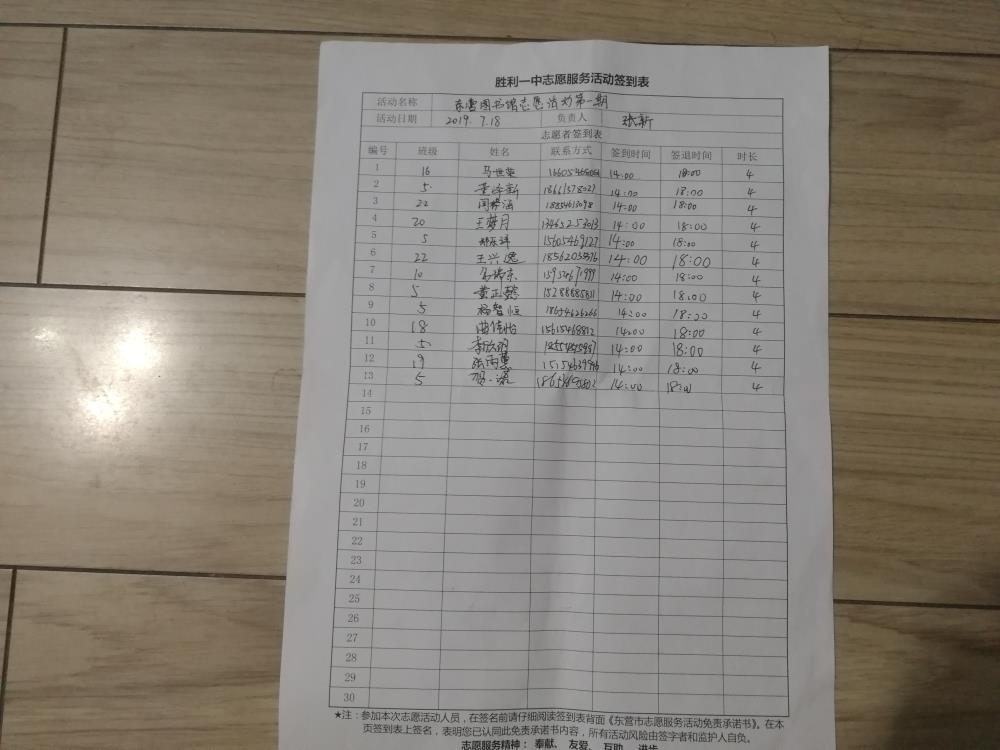 胜利一中志愿服务活动签到表
活动名称 东营图书馆志愿活动第一期
活动日期 2019.7.18 负责人 张新
志愿者签到表
编号 班级 姓名 联系方式 签到时间 签退时间 时长
1 16 14:00 18:00 4
2 5. 14:00 18:00 4
3 22 14:00 18:00 4
4 20 王梦月 13465253013 14:00 18:00 4
5 5 15605469127 14:00 18:00 4
6 22 王兴逸 14:00 18:00 4
7 10 14:00 18:00 4
8 5 黄正懿 14:00 18:00 4
9 5 杨智恒 18654626266 14:00 18:00 4
10 18 曲佳怡 15615468812 14:00 18:00 4
11 5 14:00 18:00 4
12 19 14:00 18:00 4
13 5 14:00 18:00 4
14
15
16
17
18
19
20
21
22
23
24
25
26
27
28
29
30
★注：参加本次志愿活动人员，在签名前请仔细阅读签到表背面《东营市志愿服务活动免责承诺书》。在本
页签到表上签名，表明您已认同此免责承诺书内容，所有活动风险由签字者和监护人自负。
志愿服务精神：奉献、友爱、互助、进步